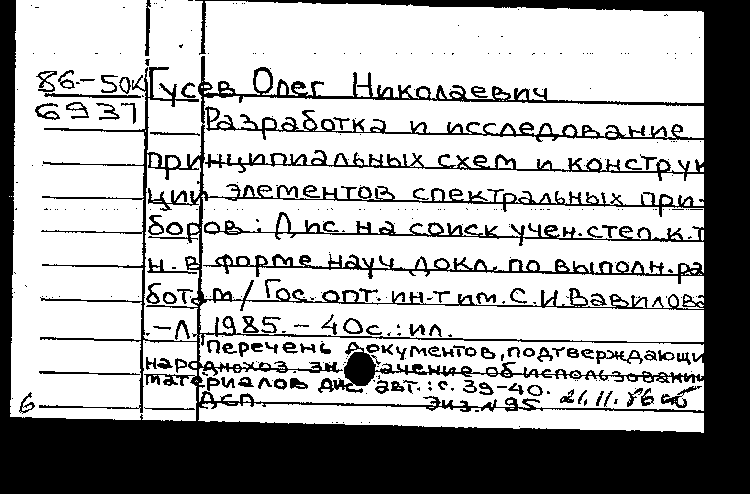 86-50к Гусев, Олег Николаевич
6937
Разработка и исследование
принципиальных схем и конструк
ций элементов спектральных при-
боров : Дис. на соиск учен. степ. к.т
н. в форме науч. докл. по выполн. ра
ботам / Гос. опт. ин-т им. С. И. Вавилова
.-Л., 1985. - 40 с. : ил.
Перечень документов, подтверждающи
народнохоз. значение об использовании
материалов дис. авт. : с. 39-40.
6 ДСП. Экз. N 95. 21.11.86